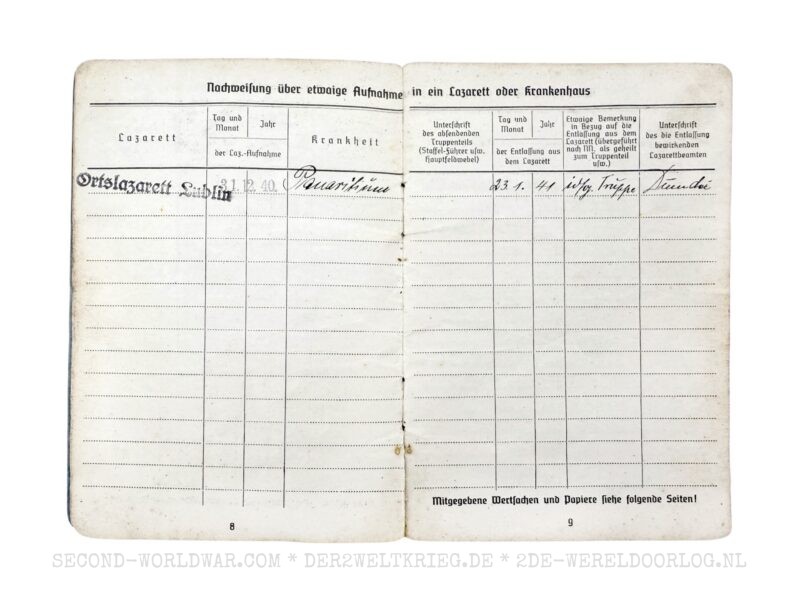 Nachweisung über etwaige Aufnahme in ein Lazarett oder Krankenhaus
Lazarett
Tag und Monat
Jahr
der Laz.-Aufnahme
Krankheit
Ortslazarett Lublin
31.12.40.
Panaritium
8
Unterschrift
des absendenden
Truppenteils
(Staffel-Führer usw.
Hauptfeldwebel)
Tag und
Monat
Jahr
der Entlassung aus
dem Lazarett
Etwaige Bemerkung
in Bezug auf die
Entlassung aus dem
Lazarett (übergeführt
nach NN. als geheilt
zum Truppenteil
usw.)
Unterschrift
des die Entlassung
bewirkenden
Lazarettbeamten
23.1.
41
Truppe
Mitgegebene Wertsachen und Papiere siehe folgende Seiten!
9
SECOND-WORLDWAR.COM * DER2WELTKRIEG.DE * 2DE-WERELDOORLOG.NL